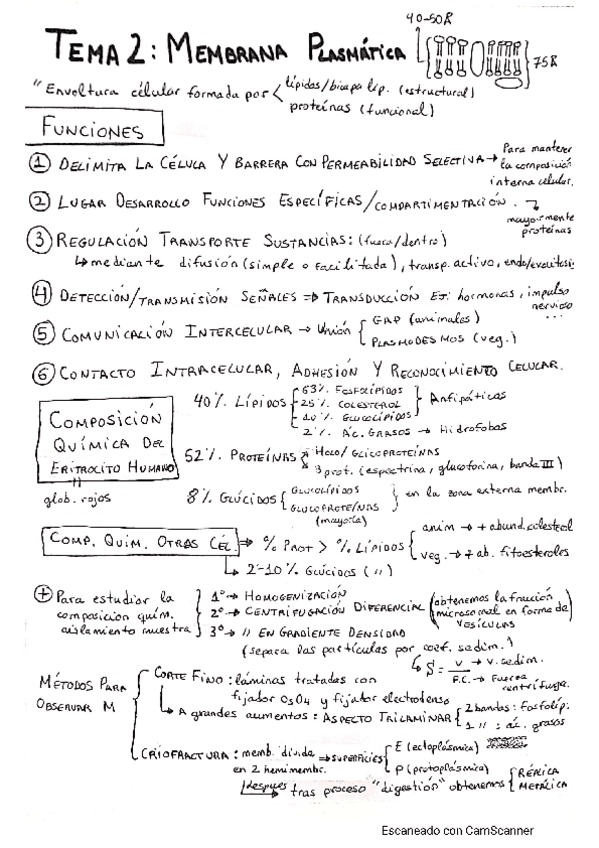 40-50Å
TEMA 2: MEMBRANA PLASMÁTICA
75Å
"Envoltura célular formada por < lípidos/bicapa lip. (estructural)
proteínas (funcional)
FUNCIONES
① DELIMITA LA CÉLULA Y BARRERA CON PERMEABILIDAD SELECTIVA → Para mantener
la composición
interna célular.
② LUGAR DESARROLLO FUNCIONES ESPECÍFICAS/COMPARTIMENTACIÓN.
mayormente
proteínas
③ REGULACIÓN TRANSPORTE SUSTANCIAS: (fuera/dentro)
↳ mediante difusión (simple o facilitada), transp. activo, endo/exocitosis
④ DETECCIÓN/TRANSMISIÓN SEÑALES ⇒ TRANSDUCCIÓN Ej: hormonas, impulso
nervioso
...
⑤ COMUNICACIÓN INTERCELULAR → Unión { GAP (animales)
PLASMODESMOS (veg.)
⑥ CONTACTO INTRACELULAR, ADHESIÓN Y RECONOCIMIENTO CELULAR.
COMPOSICIÓN
QUÍMICA DEL
ERITROCITO HUMANO
glob. rojos
40% LÍPIDOS { 63% FOSFOLÍPIDOS
25% COLESTEROL
10% GLUCOLÍPIDOS
} Anfipáticos
2% ÁC. GRASOS → Hidrofobas
52% PROTEÍNAS Holo/GLICOPROTEÍNAS
3 prot. (espectrina, glucoforina, banda III)
8% GLÚCIDOS { GLUCOLÍPIDOS
GLUCOPROTEÍNAS
(mayoría)
} en la zona externa membr.
COMP. QUÍM. OTRAS CÉL. ⇒ % PROT > % LÍPIDOS { anim → + abund. colesterol
veg. → + ab. fitoesteroles
↳ 2-10% GLÚCIDOS (")
⊕ Para estudiar la
composicion quím.
aislamiento muestra
1º → HOMOGENIZACIÓN
2º → CENTRIFUGACIÓN DIFERENCIAL (obtenemos la fracción
microsomal en forma de
VESÍCULAS)
3º → " EN GRADIENTE DENSIDAD
(separa las partículas por coef. sedim.)
S = v → v. sedim.
F.C. → Fuerza
centrífuga.
MÉTODOS PARA
OBSERVAR M
CORTE FINO: láminas tratadas con
fijador OsO4 y fijador electrodenso
↳ A grandes aumentos: ASPECTO TRILAMINAR { 2 bandas: fosfolíp.
1 " : ác. grasos
CRIOFRACTURA: memb. divida
en 2 hemimembr.
⇒ SUPERFICIES { E (ectoplásmica)
P (protoplásmica)
después tras proceso "digestión" obtenemos { RÉPLICA
METÁLICA
Escaneado con CamScanner